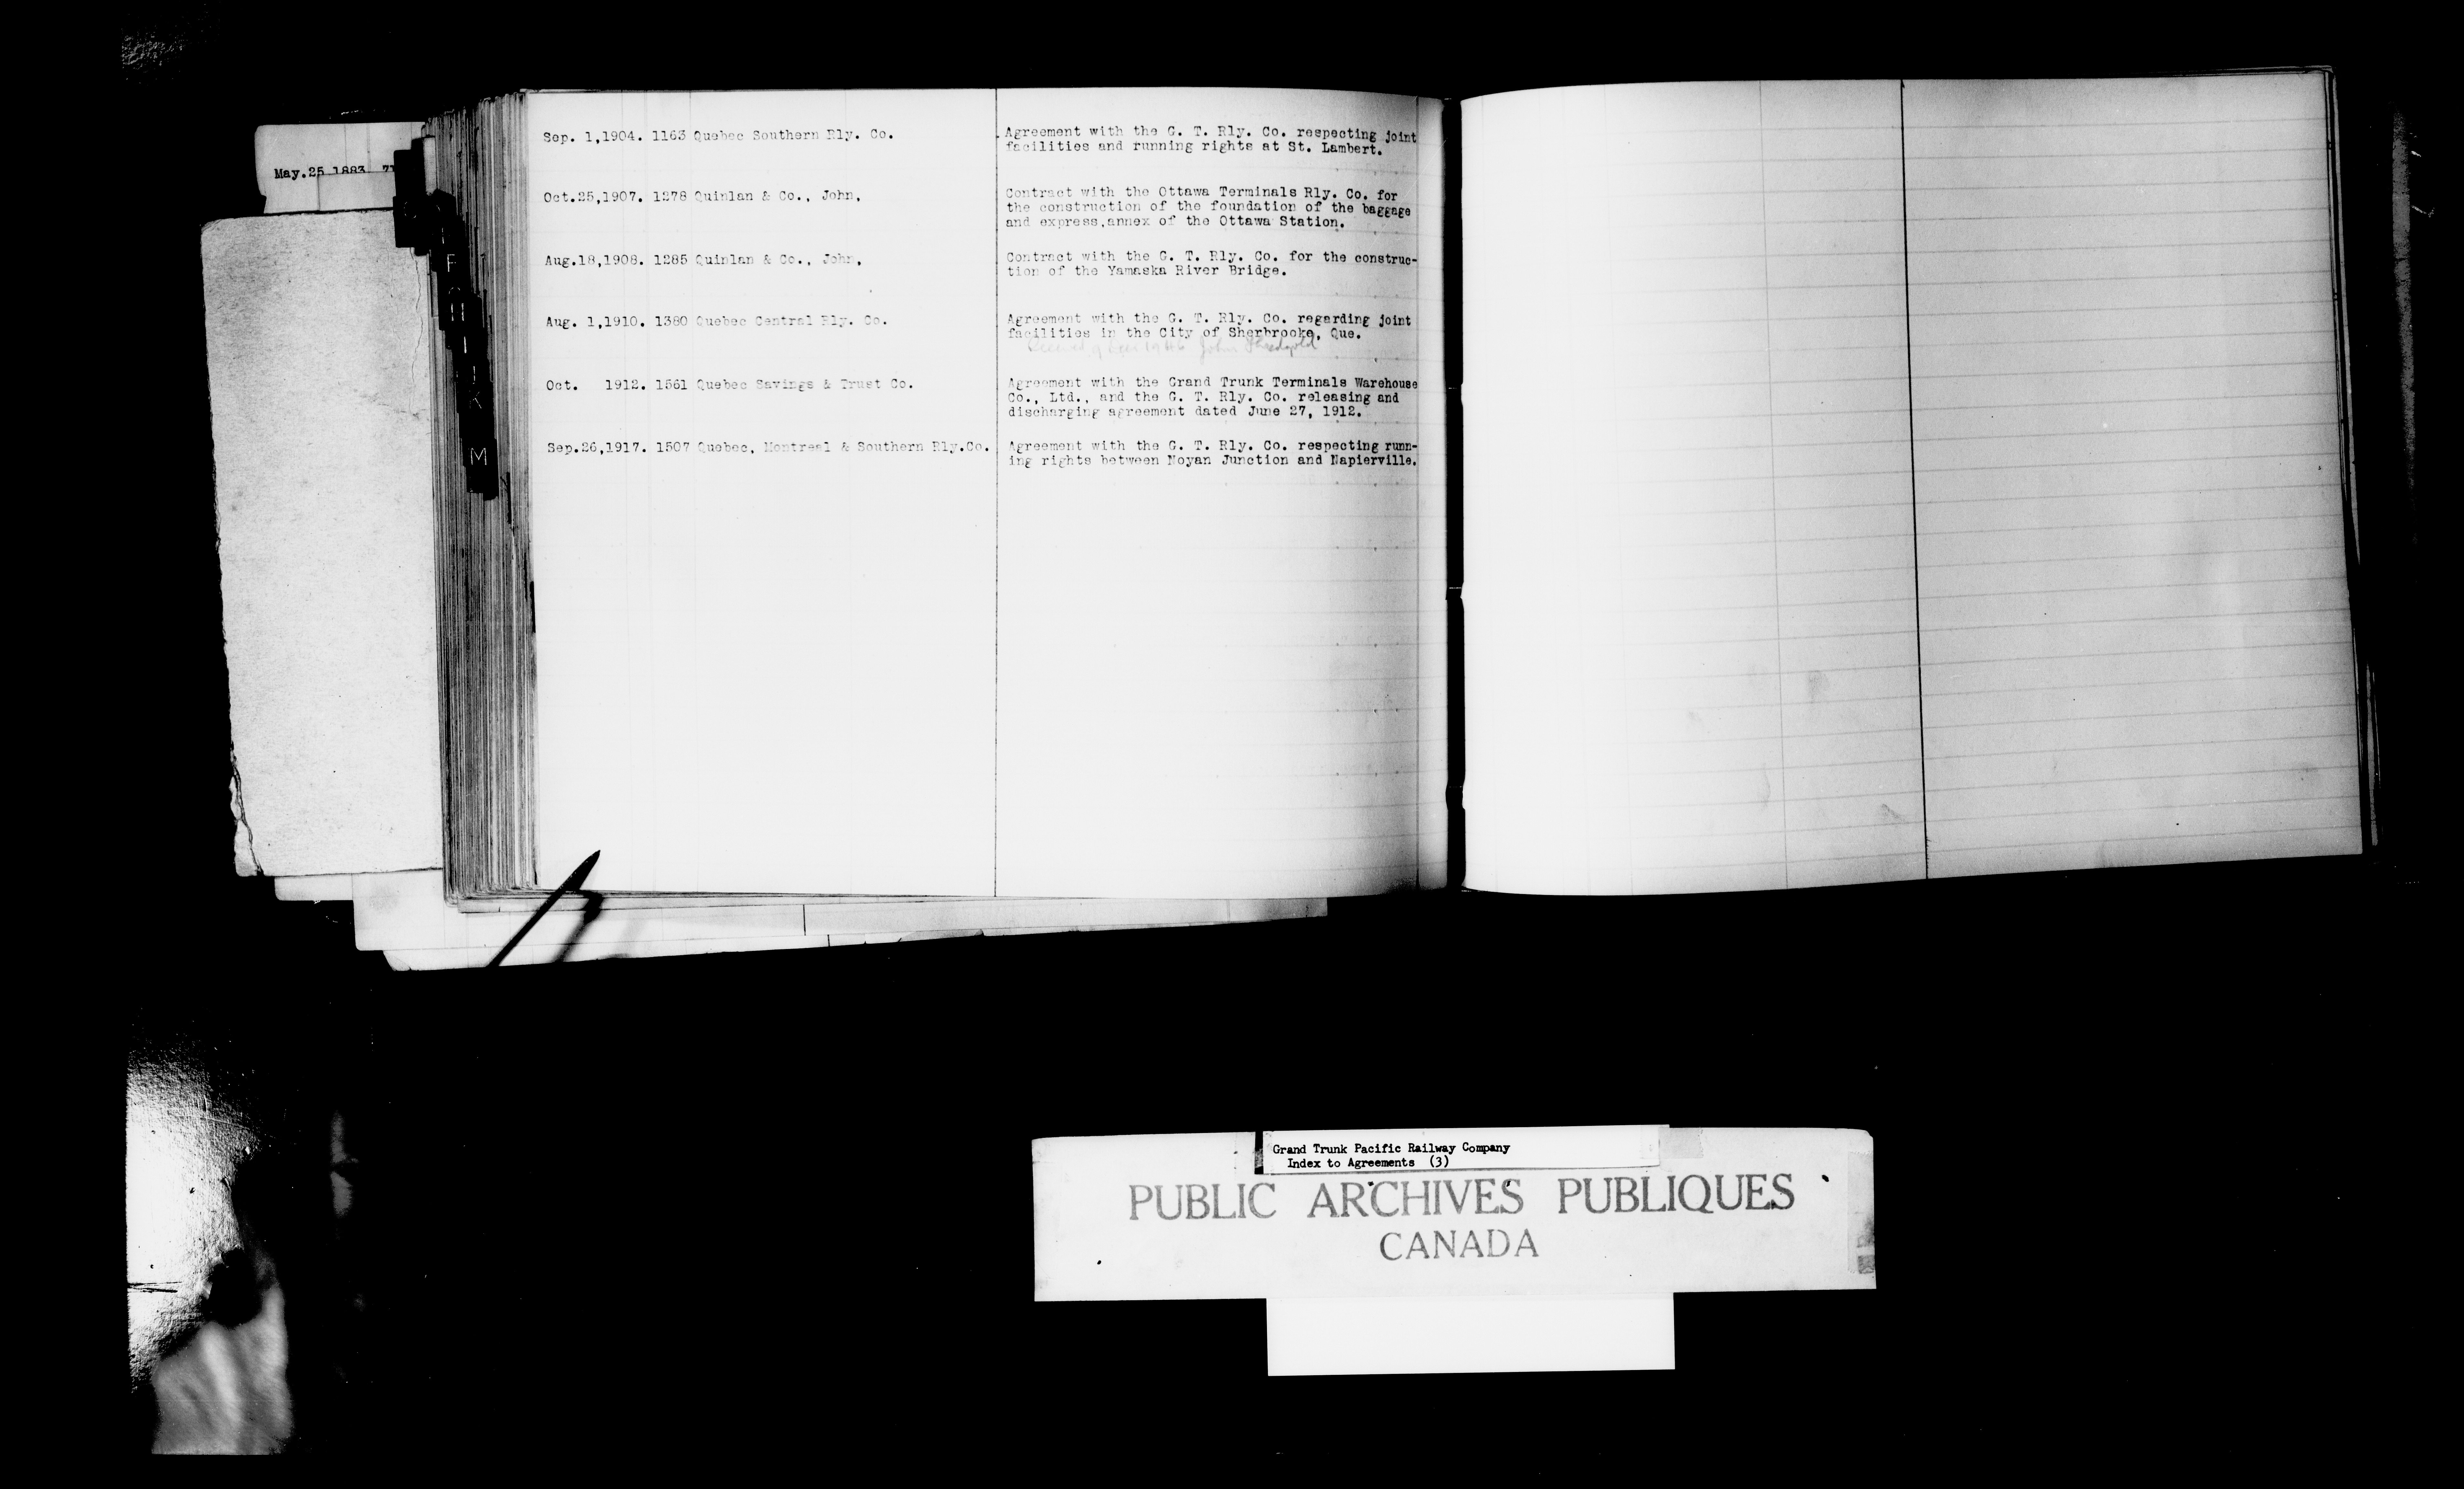 May.25 1883
Sep. 1,1904. 1163 Quebec Southern Rly. Co. Agreement with the G. T. Rly. Co. respecting joint
facilities and running rights at St. Lambert.
Oct.25,1907. 1278 Quinlan & Co., John, Contract with the Ottawa Terminals Rly. Co. for
the construction of the foundation of the baggage
and express,annex of the Ottawa Station.
Aug.18,1908. 1285 Quinlan & Co., John, Contract with the G. T. Rly. Co. for the construc-
tion of the Yamaska River Bridge.
Aug. 1,1910. 1380 Quebec Central Rly. Co. Agreement with the G. T. Rly. Co. regarding joint
facilities in the City of Sherbrooke, Que.
1946 John
Oct. 1912. 1561 Quebec Savings & Trust Co. Agreement with the Grand Trunk Terminals Warehouse
Co., Ltd., and the G. T. Rly. Co. releasing and
discharging agreement dated June 27, 1912.
Sep.26,1917. 1507 Quebec, Montreal & Southern Rly.Co. Agreement with the G. T. Rly. Co. respecting runn-
ing rights between Noyan Junction and Napierville.
F
K
M
Grand Trunk Pacific Railway Company
Index to Agreements (3)
PUBLIC ARCHIVES PUBLIQUES
CANADA